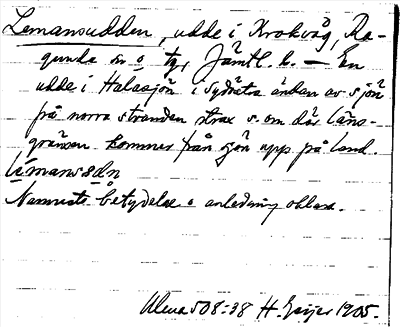 Lemansudden, udde i Krokvåg, Ra-
gunda sn o ty, Jämtl. l. — En
udde i Halasjön i sydöstra ändan av sjön
på norra stranden strax s. om där läns-
gränsen kommer från sjön upp på land.
Namnets betydelse o anledning oklara.
508:38 H. Geijer 1905.